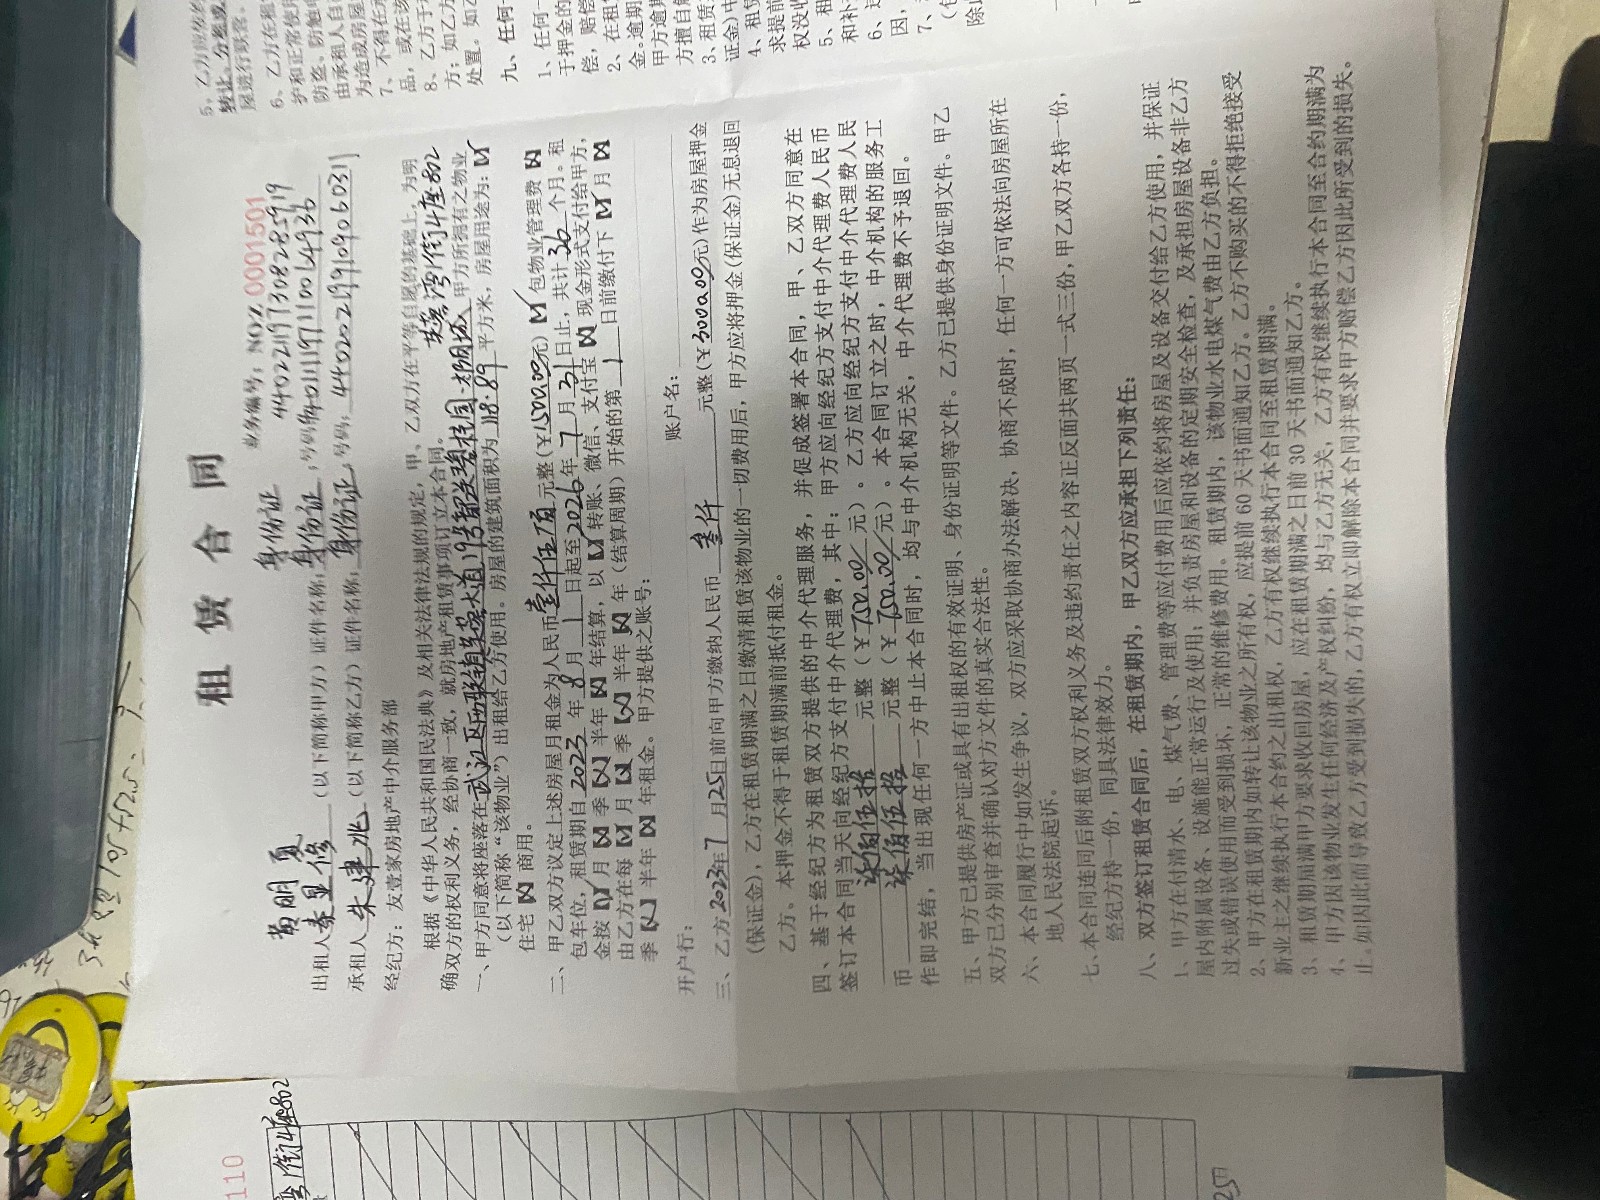 租赁合同
业务编号：NO: 0001501
黄朋夏 身份证 440221197308285919
出租人 秦显修 （以下简称甲方）证件名称：身份证，号码：
承租人 朱建兆 （以下简称乙方）证件名称：身份证，号码：
经纪方：友壹家房地产中介服务部
根据《中华人民共和国民法典》及相关法律法规的规定，甲、乙双方在平等自愿的基础上，为明
确双方的权利义务，经协商一致，就房地产租赁事项订立本合同。 英湾街4座802
一、甲方同意将座落在武江区西联镇芙蓉大道19号韶关碧桂园·太阳城 甲方所拥有之物业
（以下简称“该物业”）出租给乙方使用。房屋的建筑面积为 118.89 平方米，房屋用途为：☑
住宅 ☒ 商用。
二、甲乙双方议定上述房屋月租金为人民币壹仟伍佰元整（￥1500.00元）☑ 包物业管理费 ☒
包车位，租赁期自 2023 年 8 月 1 日起至 2026 年 7 月 31 日止，共计 36 个月。租
金按 ☑ 月 ☒ 季 ☒ 半年 ☒ 年结算，以 ☑ 转账、微信、支付宝 ☒ 现金形式支付给甲方，
由乙方在每 ☑ 月 ☒ 季 ☒ 半年 ☒ 年（结算周期）开始的第 1 日前缴付下 ☑ 月 ☒
季 ☒ 半年 ☒ 年租金。甲方提供之账号：
开户行： 账户名：
三、乙方 2023年 7 月 25日前向甲方缴纳人民币 叁仟 元整（￥3000.00元）作为房屋押金
（保证金），乙方在租赁期满之日缴清租赁该物业的一切费用后，甲方应将押金（保证金）无息退回
乙方。本押金不得于租赁期满前抵付租金。
四、基于经纪方为租赁双方提供的中介代理服务，并促成签署本合同，甲、乙双方同意在
签订本合同当天向经纪方支付中介代理费，其中：甲方应向经纪方支付中介代理费人民币
柒佰伍拾 元整（￥750.00元）。乙方应向经纪方支付中介代理费人民
币 柒佰伍拾 元整（￥750.00元）。本合同订立之时，中介机构的服务工
作即完结，当出现任何一方中止本合同时，均与中介机构无关，中介代理费不予退回。
五、甲方已提供房产证或具有出租权的有效证明、身份证明等文件。乙方已提供身份证明文件。甲乙
双方已分别审查并确认对方文件的真实合法性。
六、本合同履行中如发生争议，双方应采取协商办法解决，协商不成时，任何一方可依法向房屋所在
地人民法院起诉。
七、本合同连同后附租赁双方权利义务及违约责任之内容正反面共两页一式三份，甲乙双方各持一份，
经纪方持一份，同具法律效力。
八、双方签订租赁合同后，在租赁期内，甲乙双方应承担下列责任：
1、甲方在付清水、电、煤气费、管理费等应付费用后应依约将房屋及设备交付给乙方使用，并保证
屋内附属设备、设施能正常运行及使用；并负责房屋和设备的定期安全检查，及承担房屋设备非乙方
过失或错误使用而受到损坏，正常的维修费用。租赁期内，该物业水电煤气费由乙方负担。
2、甲方在租赁期内如转让该物业之所有权，应提前 60 天书面通知乙方。乙方不购买的不得拒绝接受
新业主之继续执行本合约之出租权，乙方有权继续执行本合同至租赁期满。
3、租赁期届满甲方要求收回房屋，应在租赁期满之日前 30 天书面通知乙方。
4、甲方因该物业发生任何经济及产权纠纷，均与乙方无关，乙方有权继续执行本合同至合约期满为
止。如因此而导致乙方受到损失的，乙方有权立即解除本合同并要求甲方赔偿乙方因此所受到的损失。
屋进行转客。
6、乙方在租
护和正常使用
防盗、防触电
由承租人自
为造成房屋
7、不得在承
品，或在该
8、乙方于
方；如乙方
处置。如乙
九、任何一
1、任何一
于押金的
偿，赔偿
2、在租
金。逾期
甲方逾期
方擅自解
3、租赁
证金）中
4、租赁
求提前
权没收
5、租
和补
6、
因，
7、
110
街4座802